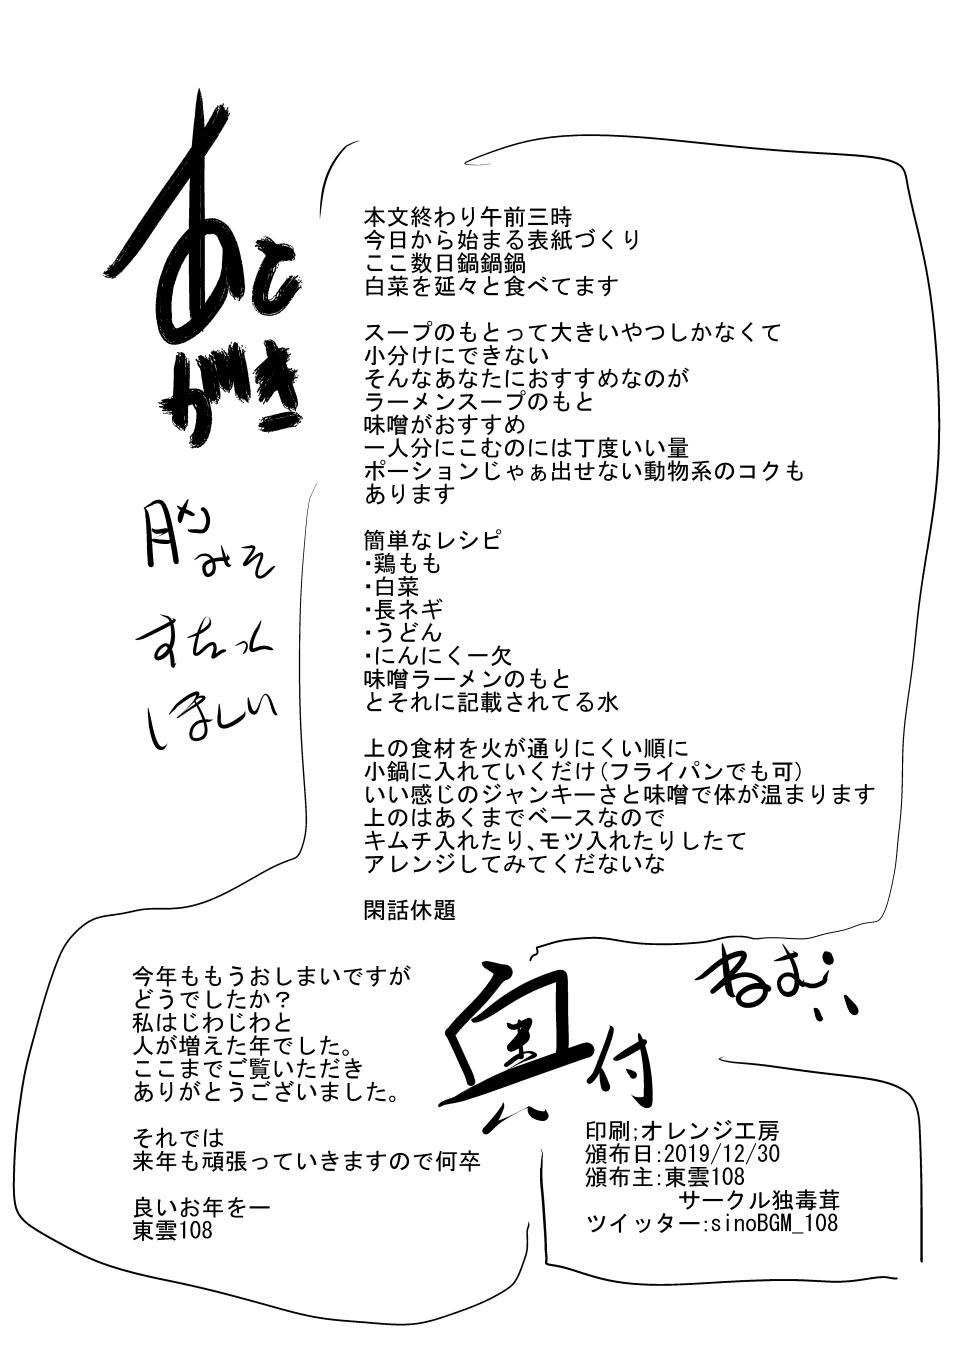 あとがき
本文終わり午前三時
今日から始まる表紙づくり
ここ数日鍋鍋鍋
白菜を延々と食べてます
スープのもとって大きいやつしかなくて
小分けにできない
そんなあなたにおすすめなのが
ラーメンスープのもと
味噌がおすすめ
一人分にこむのには丁度いい量
ポーションじゃぁ出せない動物系のコクも
あります
簡単なレシピ
・鶏もも
・白菜
・長ネギ
・うどん
・にんにく一欠
味噌ラーメンのもと
とそれに記載されてる水
上の食材を火が通りにくい順に
小鍋に入れていくだけ(フライパンでも可)
いい感じのジャンキーさと味噌で体が温まります
上のはあくまでベースなので
キムチ入れたり、モツ入れたりしたて
アレンジしてみてくだないな
閑話休題
みそ
ほしい
今年ももうおしまいですが
どうでしたか?
私はじわじわと
人が増えた年でした。
ここまでご覧いただき
ありがとうございました。
それでは
来年も頑張っていきますので何卒
良いお年をー
東雲108
ねむい
奥付
印刷;オレンジ工房
頒布日:2019/12/30
頒布主:東雲108
サークル独毒茸
ツイッター:sinoBGM_108